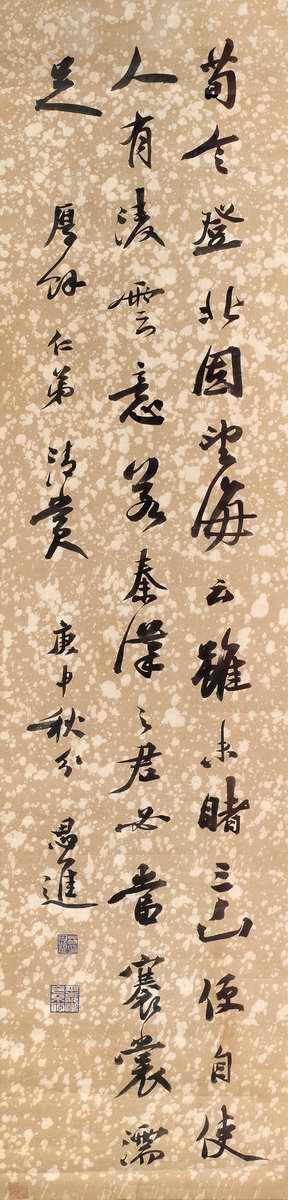 荀令登北固望海云雖未睹三山便自使
人有凌雲意若秦漢之君必當褰裳濡
足 厚餘仁弟清賞 庚申秋分 思進